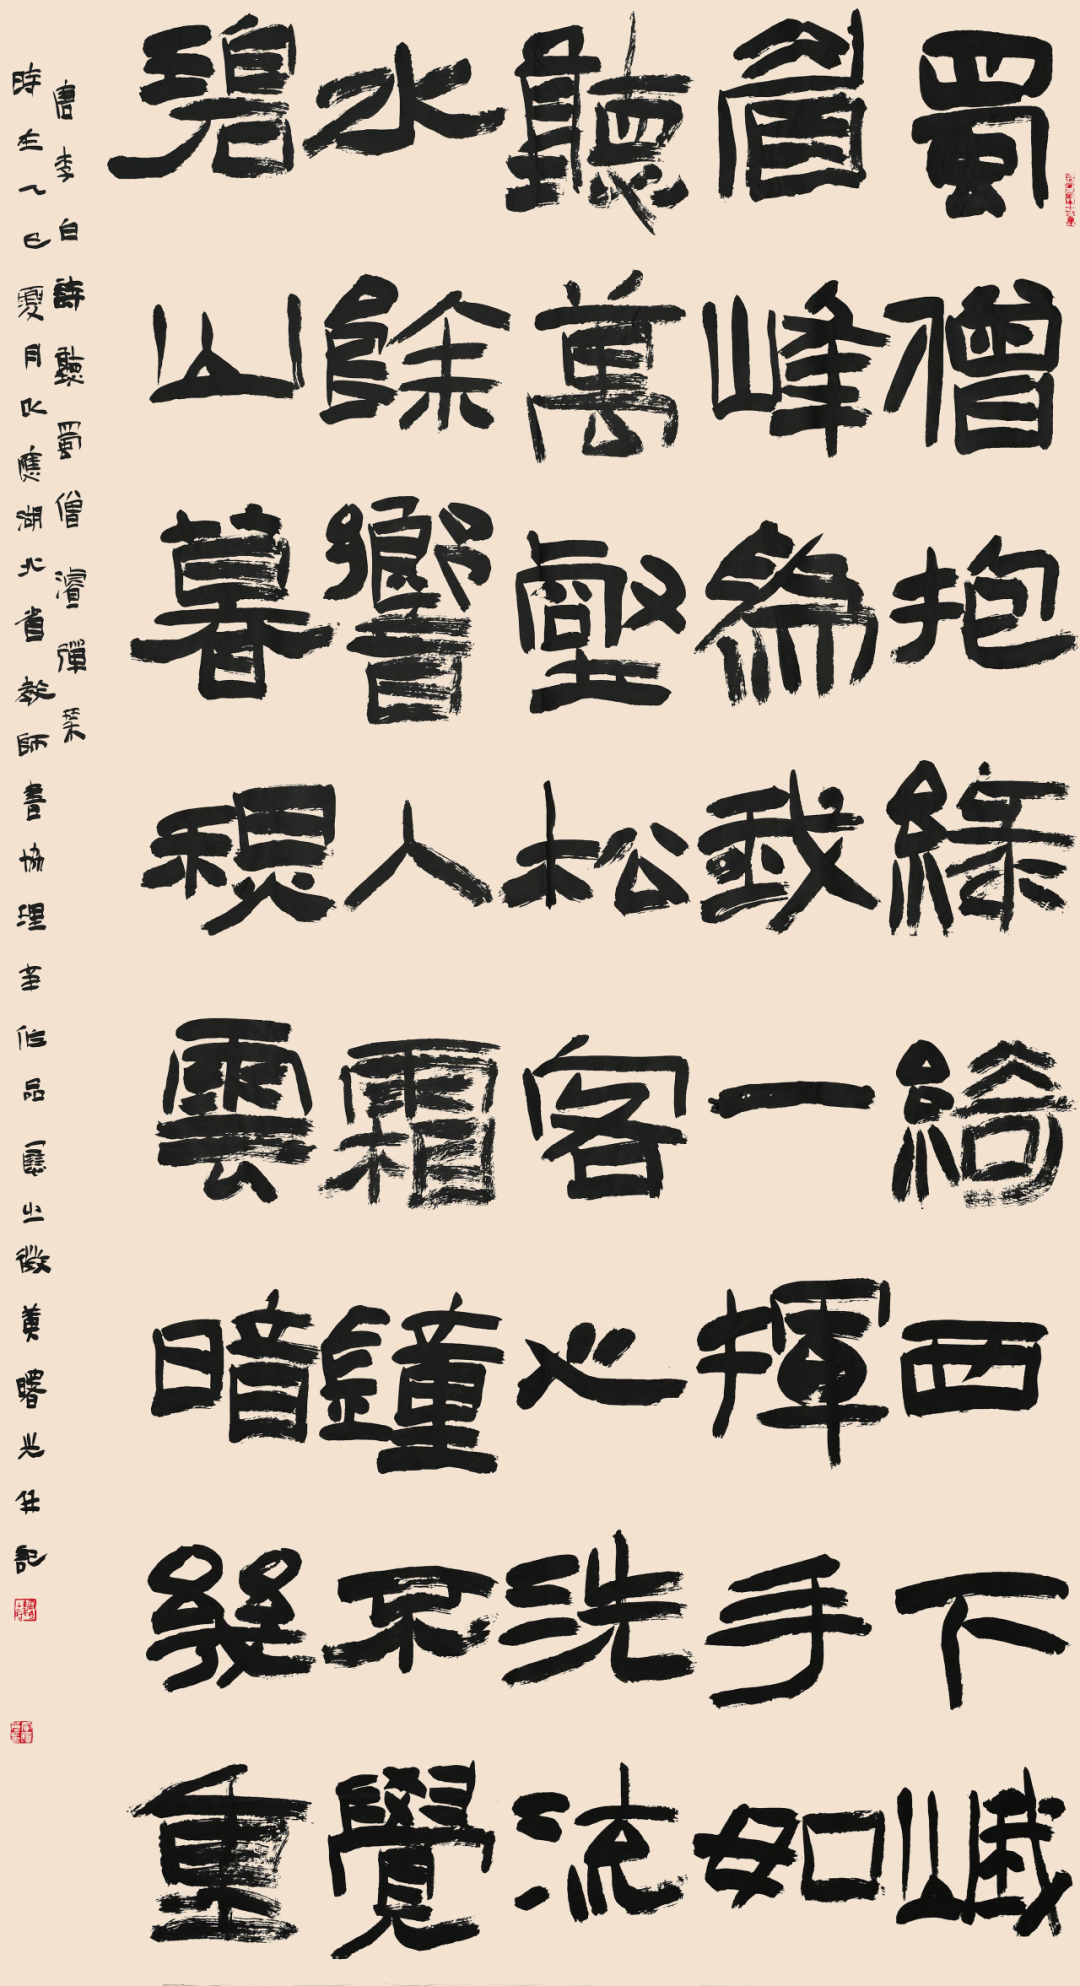 蜀僧抱綠綺西下峨
眉峰為我一揮手如
聽萬壑松客心洗流
水餘響人霜鐘不覺
碧山暮秋雲暗幾重
唐李白詩聽蜀僧濬彈琴
時在乙巳夏月以應湖北省教師書協理事作品展之徵黃曙光并記